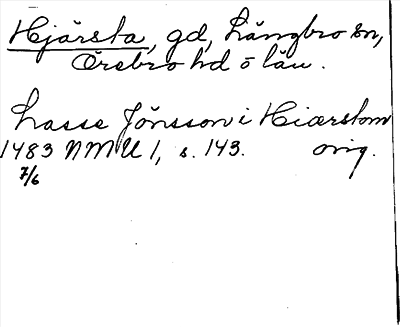 Hjärsta, gd, Längbro sn,
Örebro hd o län.
Lasse Jönsson i Hiærstom
1483 NMU 1, s. 143. orig.
7/6